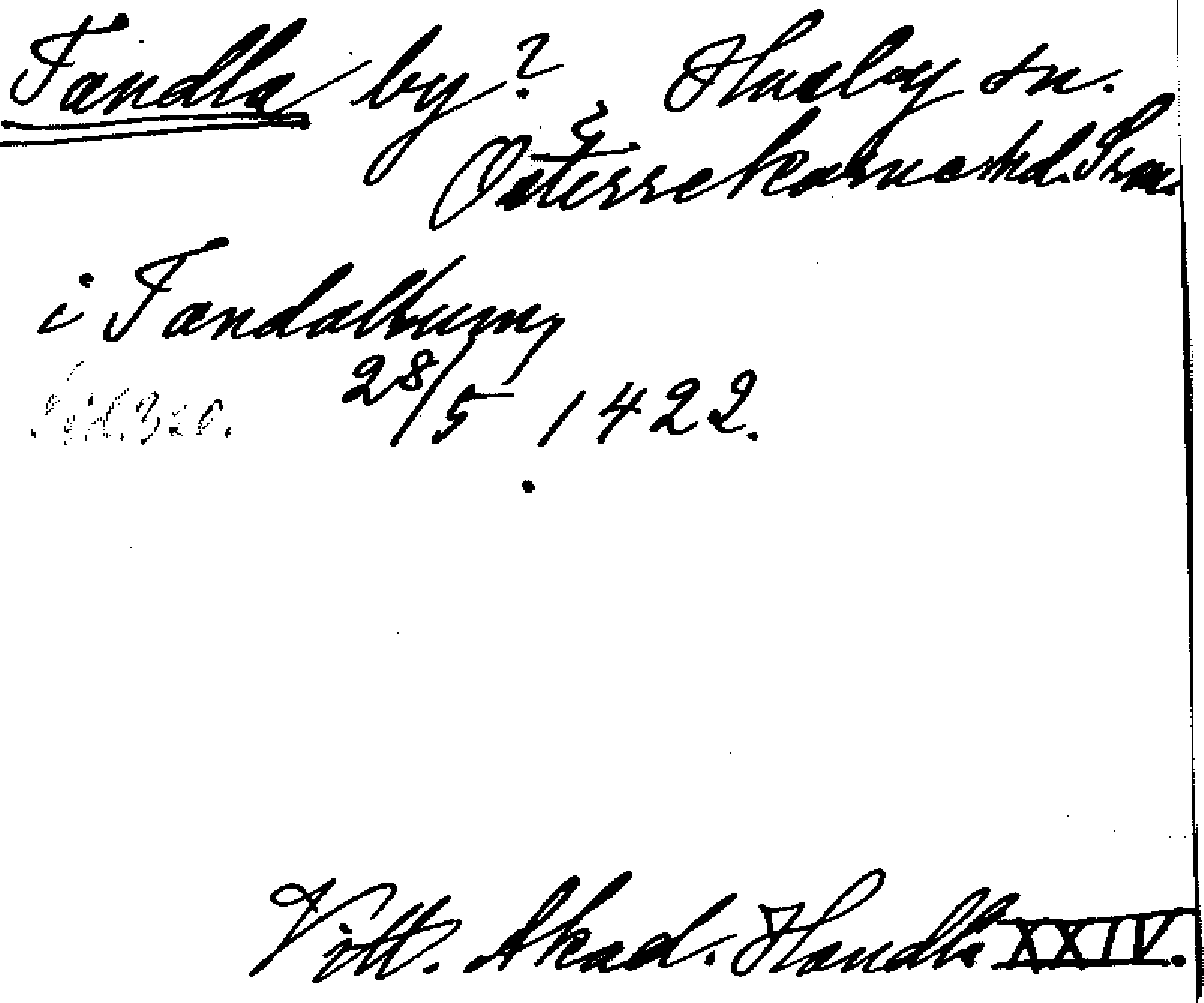 Tandla by? Husby sn.
Österrekarne hd. Srm.
i Tandalbum,
Sid. 320. 28/5 1422.
Vitt. Akad. Handl. XXIV.